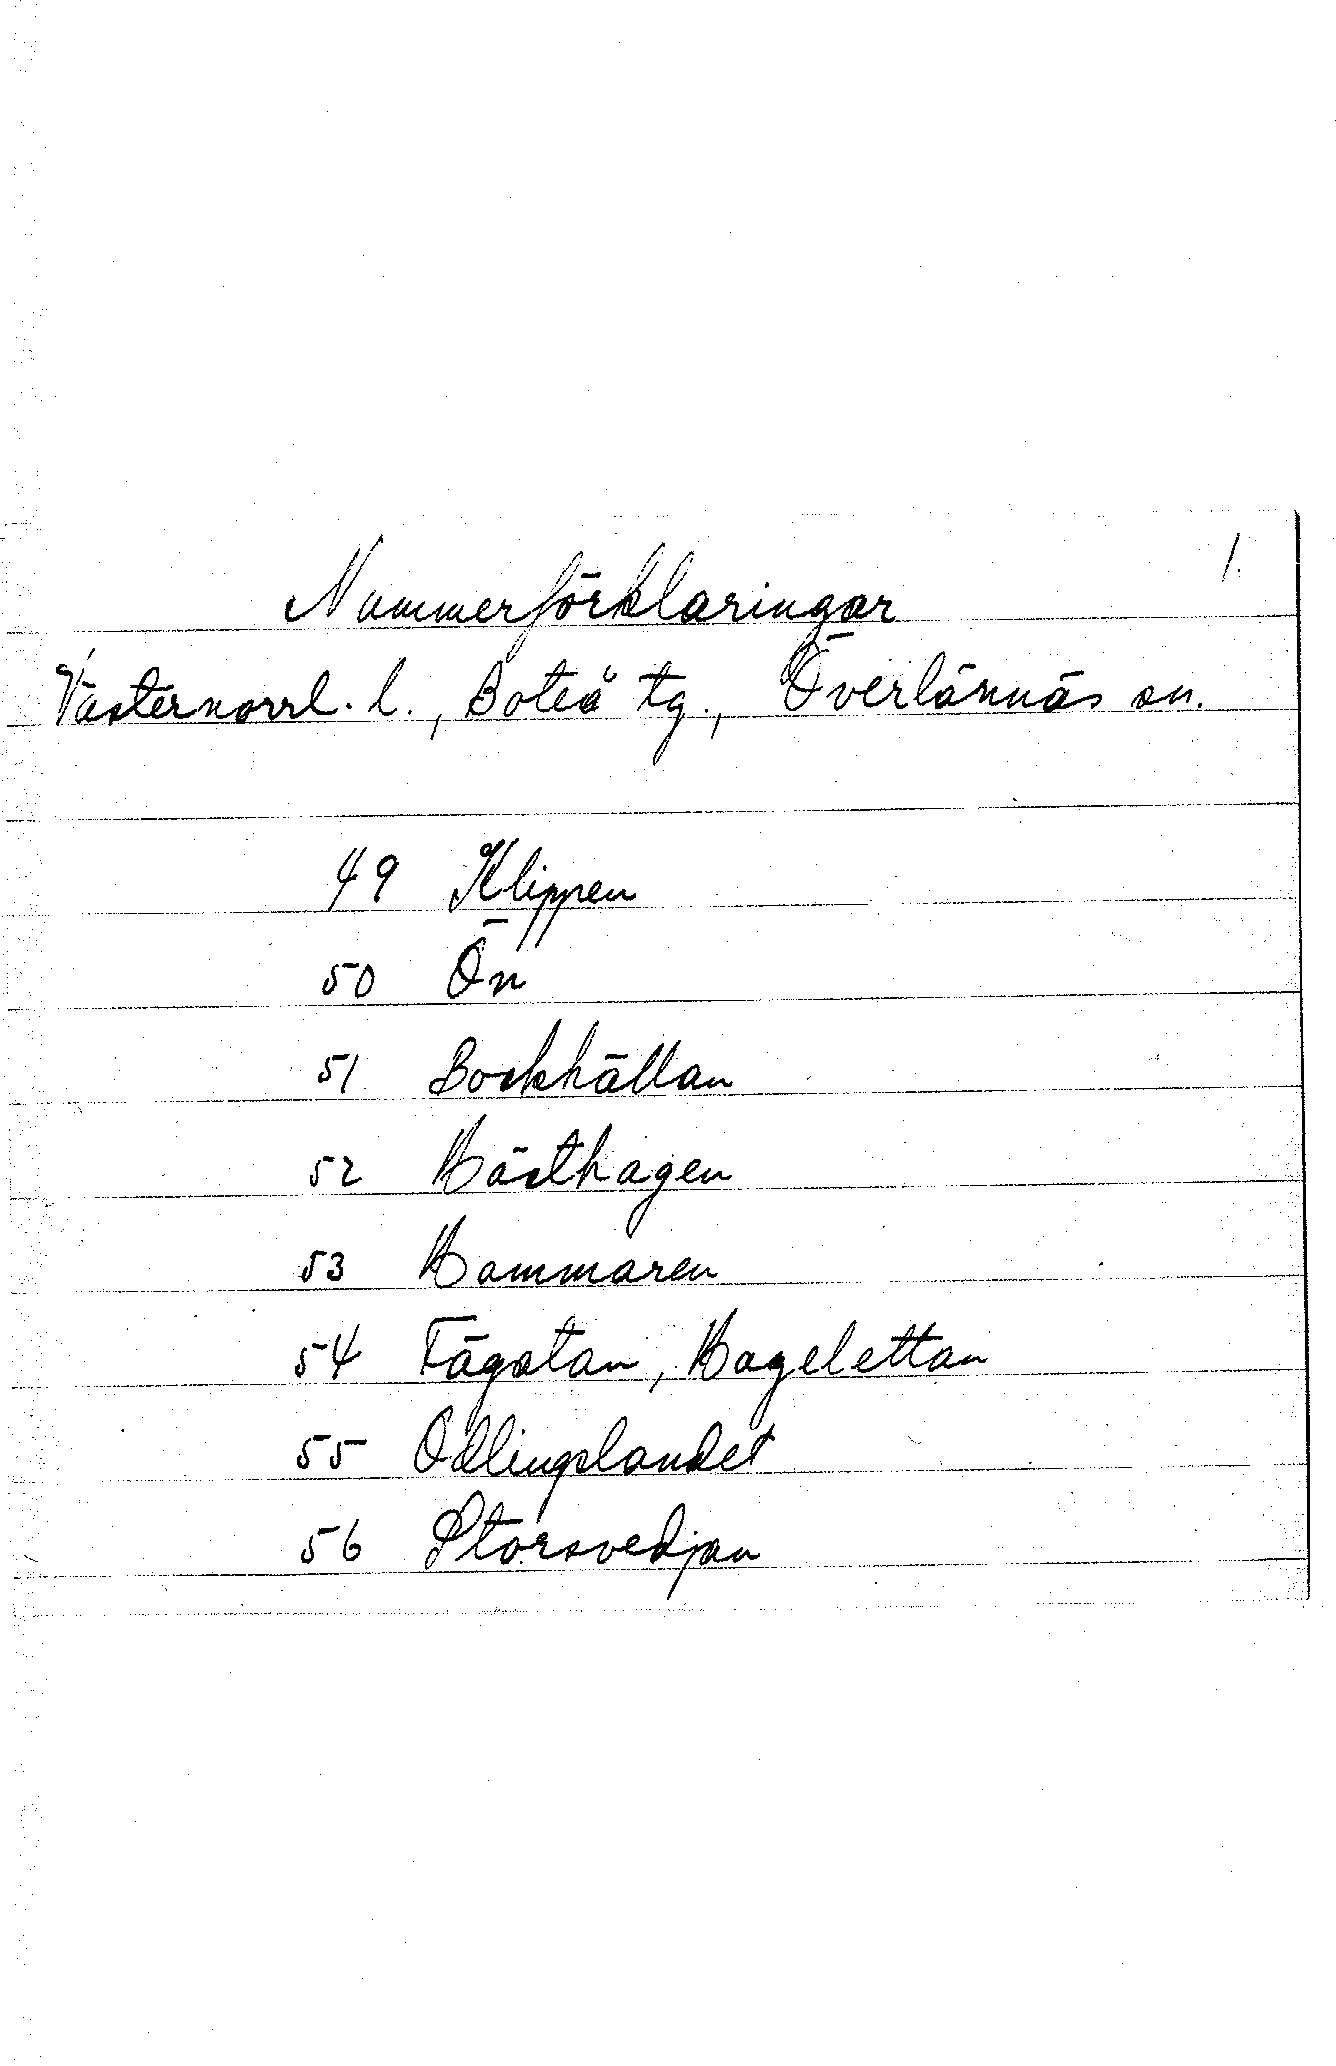 1.
Nummerförklaringar
Västernorrl. l., Boteå tg., Överlännäs sn.
49 Klippen
50 Ön
51 Bockhällan
52 Hästhagen
53 Hammaren
54 Fägatan, Hagelettan
55 Odlingslandet
56 Storsvedjan